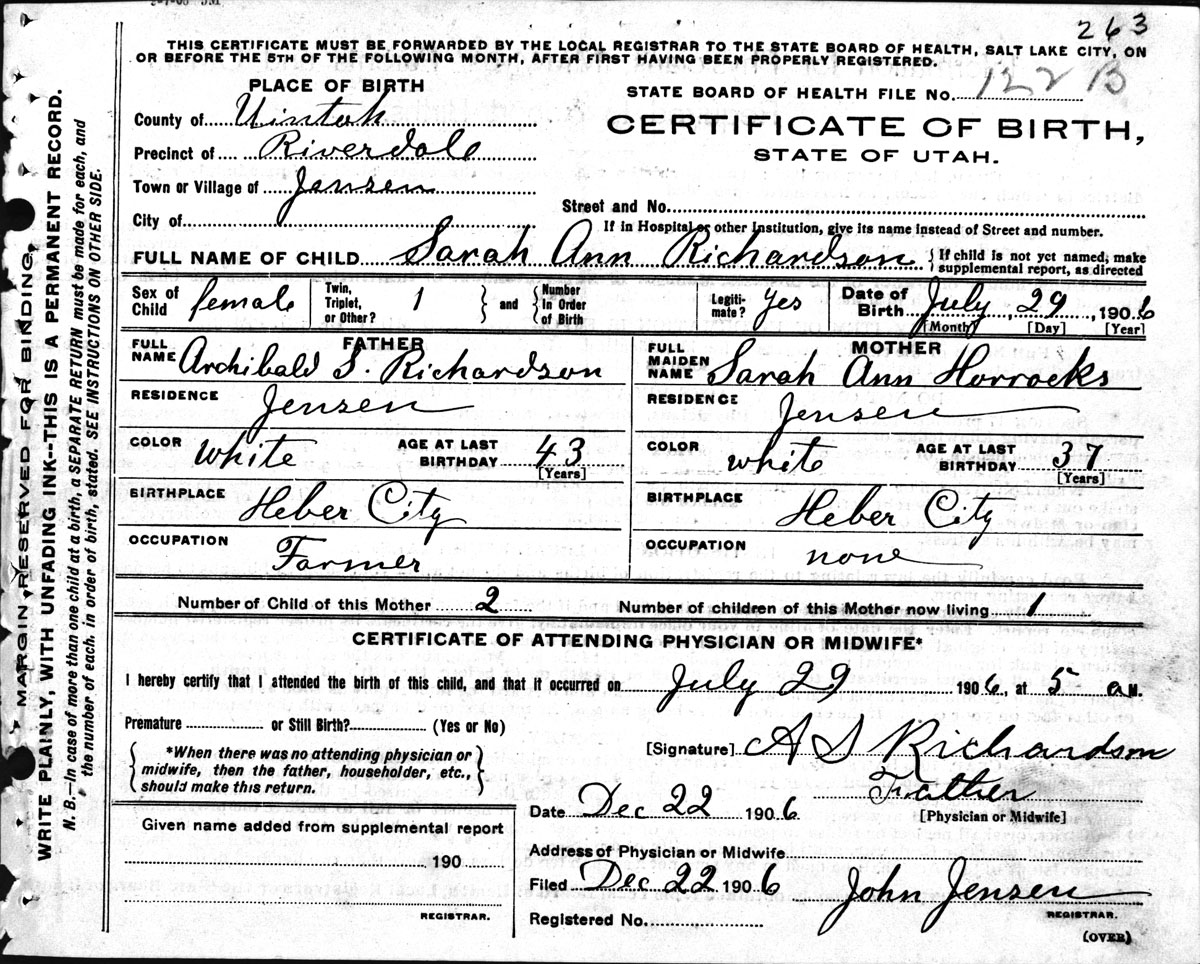 263
THIS CERTIFICATE MUST BE FORWARDED BY THE LOCAL REGISTRAR TO THE STATE BOARD OF HEALTH, SALT LAKE CITY, ON
OR BEFORE THE 5TH OF THE FOLLOWING MONTH, AFTER FIRST HAVING BEEN PROPERLY REGISTERED.
PLACE OF BIRTH
STATE BOARD OF HEALTH FILE No. 122 B
County of Uintah
CERTIFICATE OF BIRTH,
STATE OF UTAH.
Precinct of Riverdale
Town or Village of Jensen
Street and No.
City of
If in Hospital or other Institution, give its name instead of Street and number.
FULL NAME OF CHILD Sarah Ann Richardson { If child is not yet named, make
supplemental report, as directed
Sex of Child female Twin, Triplet, or Other? 1 } and { Number in Order of Birth Legiti-mate? Yes Date of Birth July, 29, 1906
[Month] [Day] [Year]
FATHER
FULL NAME Archibald S. Richardson
RESIDENCE Jensen
COLOR White AGE AT LAST BIRTHDAY 43
[Years]
BIRTHPLACE Heber City
OCCUPATION Farmer
MOTHER
FULL MAIDEN NAME Sarah Ann Horrocks
RESIDENCE Jensen
COLOR white AGE AT LAST BIRTHDAY 37
[Years]
BIRTHPLACE Heber City
OCCUPATION none
Number of Child of this Mother 2 Number of children of this Mother now living 1
CERTIFICATE OF ATTENDING PHYSICIAN OR MIDWIFE*
I hereby certify that I attended the birth of this child, and that it occurred on July 29 1906, at 5 a M.
Premature or Still Birth? (Yes or No)
*When there was no attending physician or
midwife, then the father, householder, etc.,
should make this return.
[Signature] A S Richardson
Father
Date Dec 22 1906 [Physician or Midwife]
Given name added from supplemental report
190
REGISTRAR.
Address of Physician or Midwife
Filed Dec 22 1906 John Jensen
REGISTRAR.
Registered No.
(OVER)
MARGIN RESERVED FOR BINDING.
WRITE PLAINLY, WITH UNFADING INK--THIS IS A PERMANENT RECORD.
N. B.—In case of more than one child at a birth, a SEPARATE RETURN must be made for each, and
the number of each, in order of birth, stated. SEE INSTRUCTIONS ON OTHER SIDE.